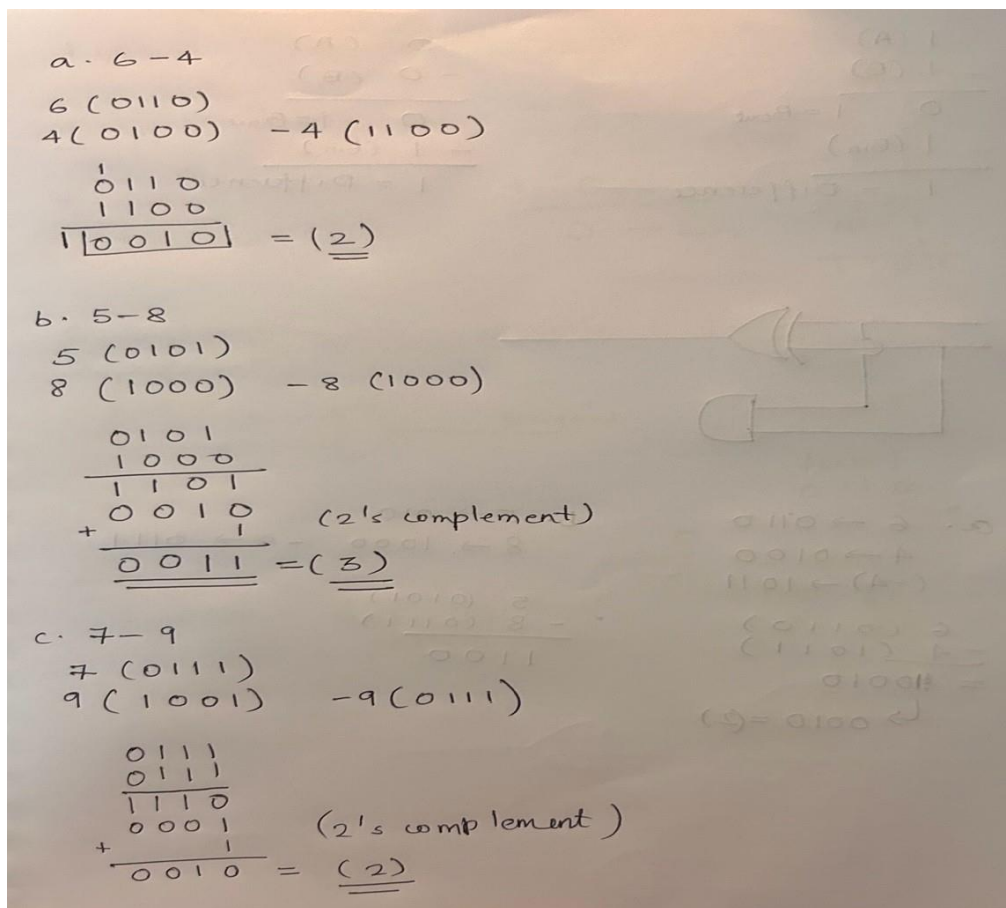 a. 6 - 4
6 (0110)
4 (0100) - 4 (1100)
1
0110
1100
1 0010 = (2)
b. 5-8
5 (0101)
8 (1000) - 8 (1000)
0101
1000
1101
0010 (2's complement)
+ 1
0011 = (3)
c. 7-9
7 (0111)
9 (1001) -9 (0111)
0111
0111
1110
0001 (2's complement)
+ 1
0010 = (2)